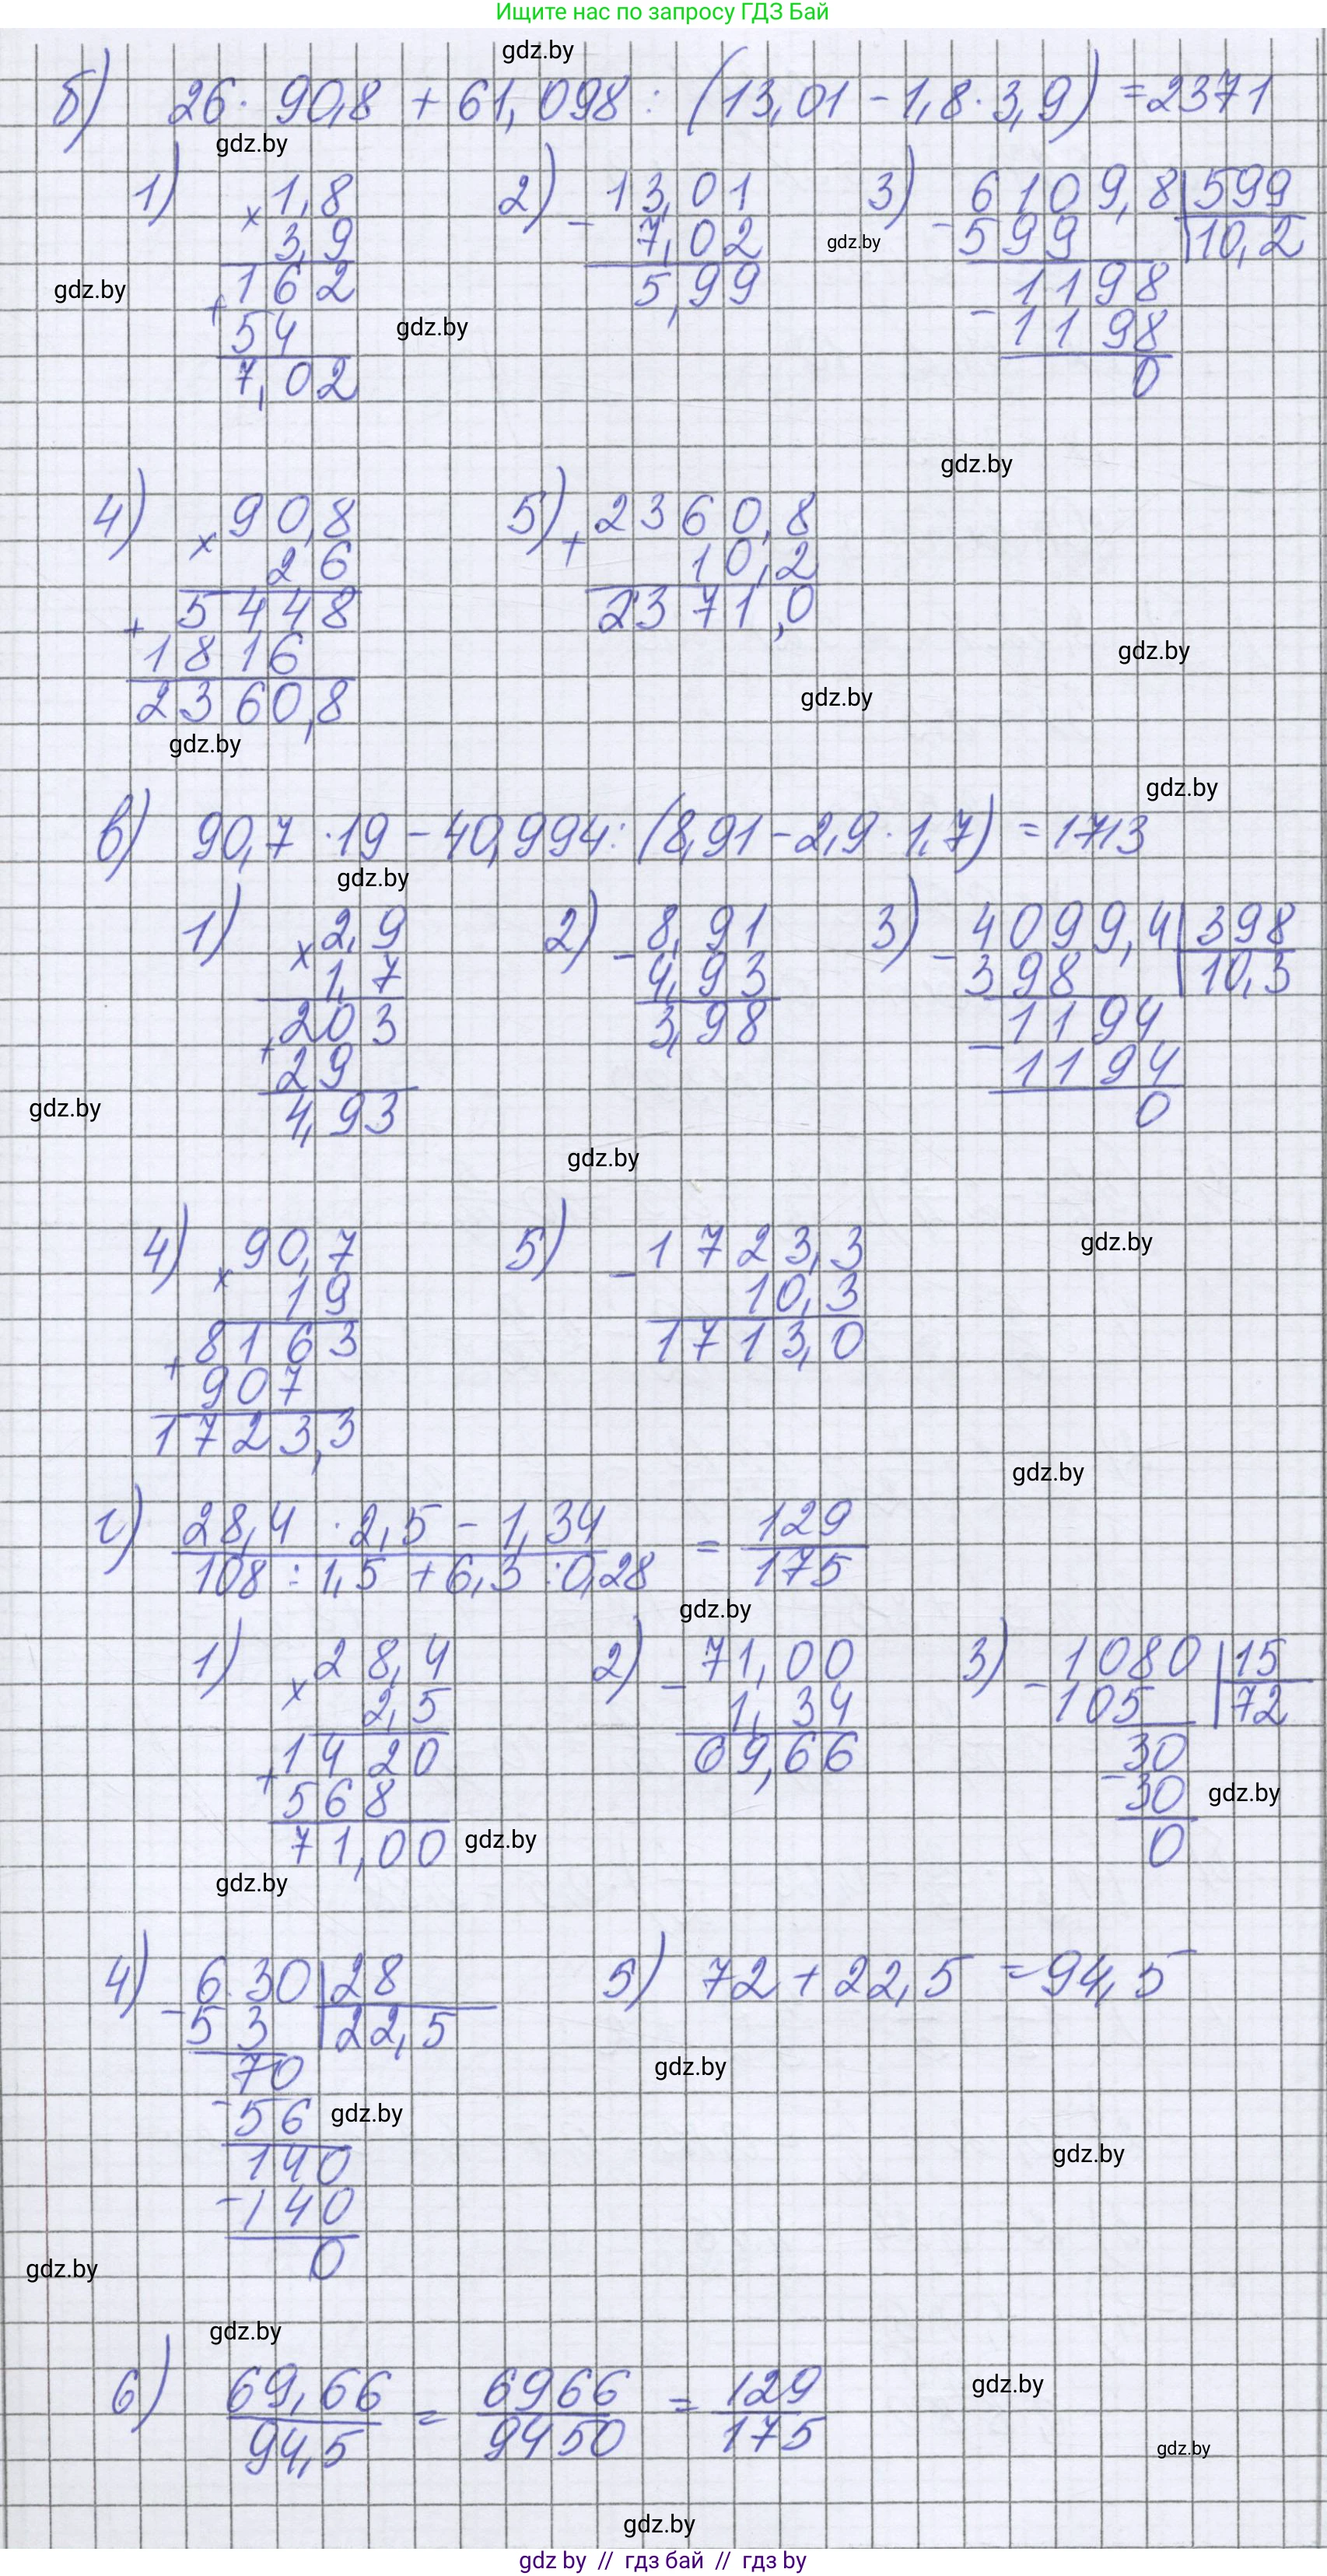 Ищите нас по запросу ГДЗ Бай
gdz.by
б) 26 · 90,8 + 61,098 : (13,01 - 1,8 · 3,9) = 2371
gdz.by
1) × 1,8
3,9
+ 162
54
7,02
2) - 13,01
7,02
5,99
3) - 6109,8 | 599
599 | 10,2
- 1198
1198
0
gdz.by
gdz.by
gdz.by
gdz.by
4) × 90,8
26
+ 5448
1816
2360,8
5) + 2360,8
10,2
2371,0
gdz.by
gdz.by
gdz.by
gdz.by
в) 90,7 · 19 - 40,994 : (8,91 - 2,9 · 1,7) = 1713
gdz.by
1) × 2,9
1,7
+ 203
29
4,93
2) - 8,91
4,93
3,98
3) - 4099,4 | 398
398 | 10,3
- 1194
1194
0
gdz.by
gdz.by
4) × 90,7
19
+ 8163
907
1723,3
5) - 1723,3
10,3
1713,0
gdz.by
gdz.by
г) 28,4 · 2,5 - 1,34 = 129
108 : 1,5 + 6,3 : 0,28 175
gdz.by
1) × 28,4
2,5
+ 1420
568
71,00
2) - 71,00
1,34
69,66
3) - 1080 | 15
105 | 72
- 30
30
0
gdz.by
gdz.by
gdz.by
4) - 630 | 28
53 | 22,5
70
- 56
140
- 140
0
5) 72 + 22,5 = 94,5
gdz.by
gdz.by
gdz.by
gdz.by
gdz.by
6) 69,66 = 6966 = 129
94,5 9450 175
gdz.by
gdz.by
gdz.by
gdz by // гдз бай // гдз by